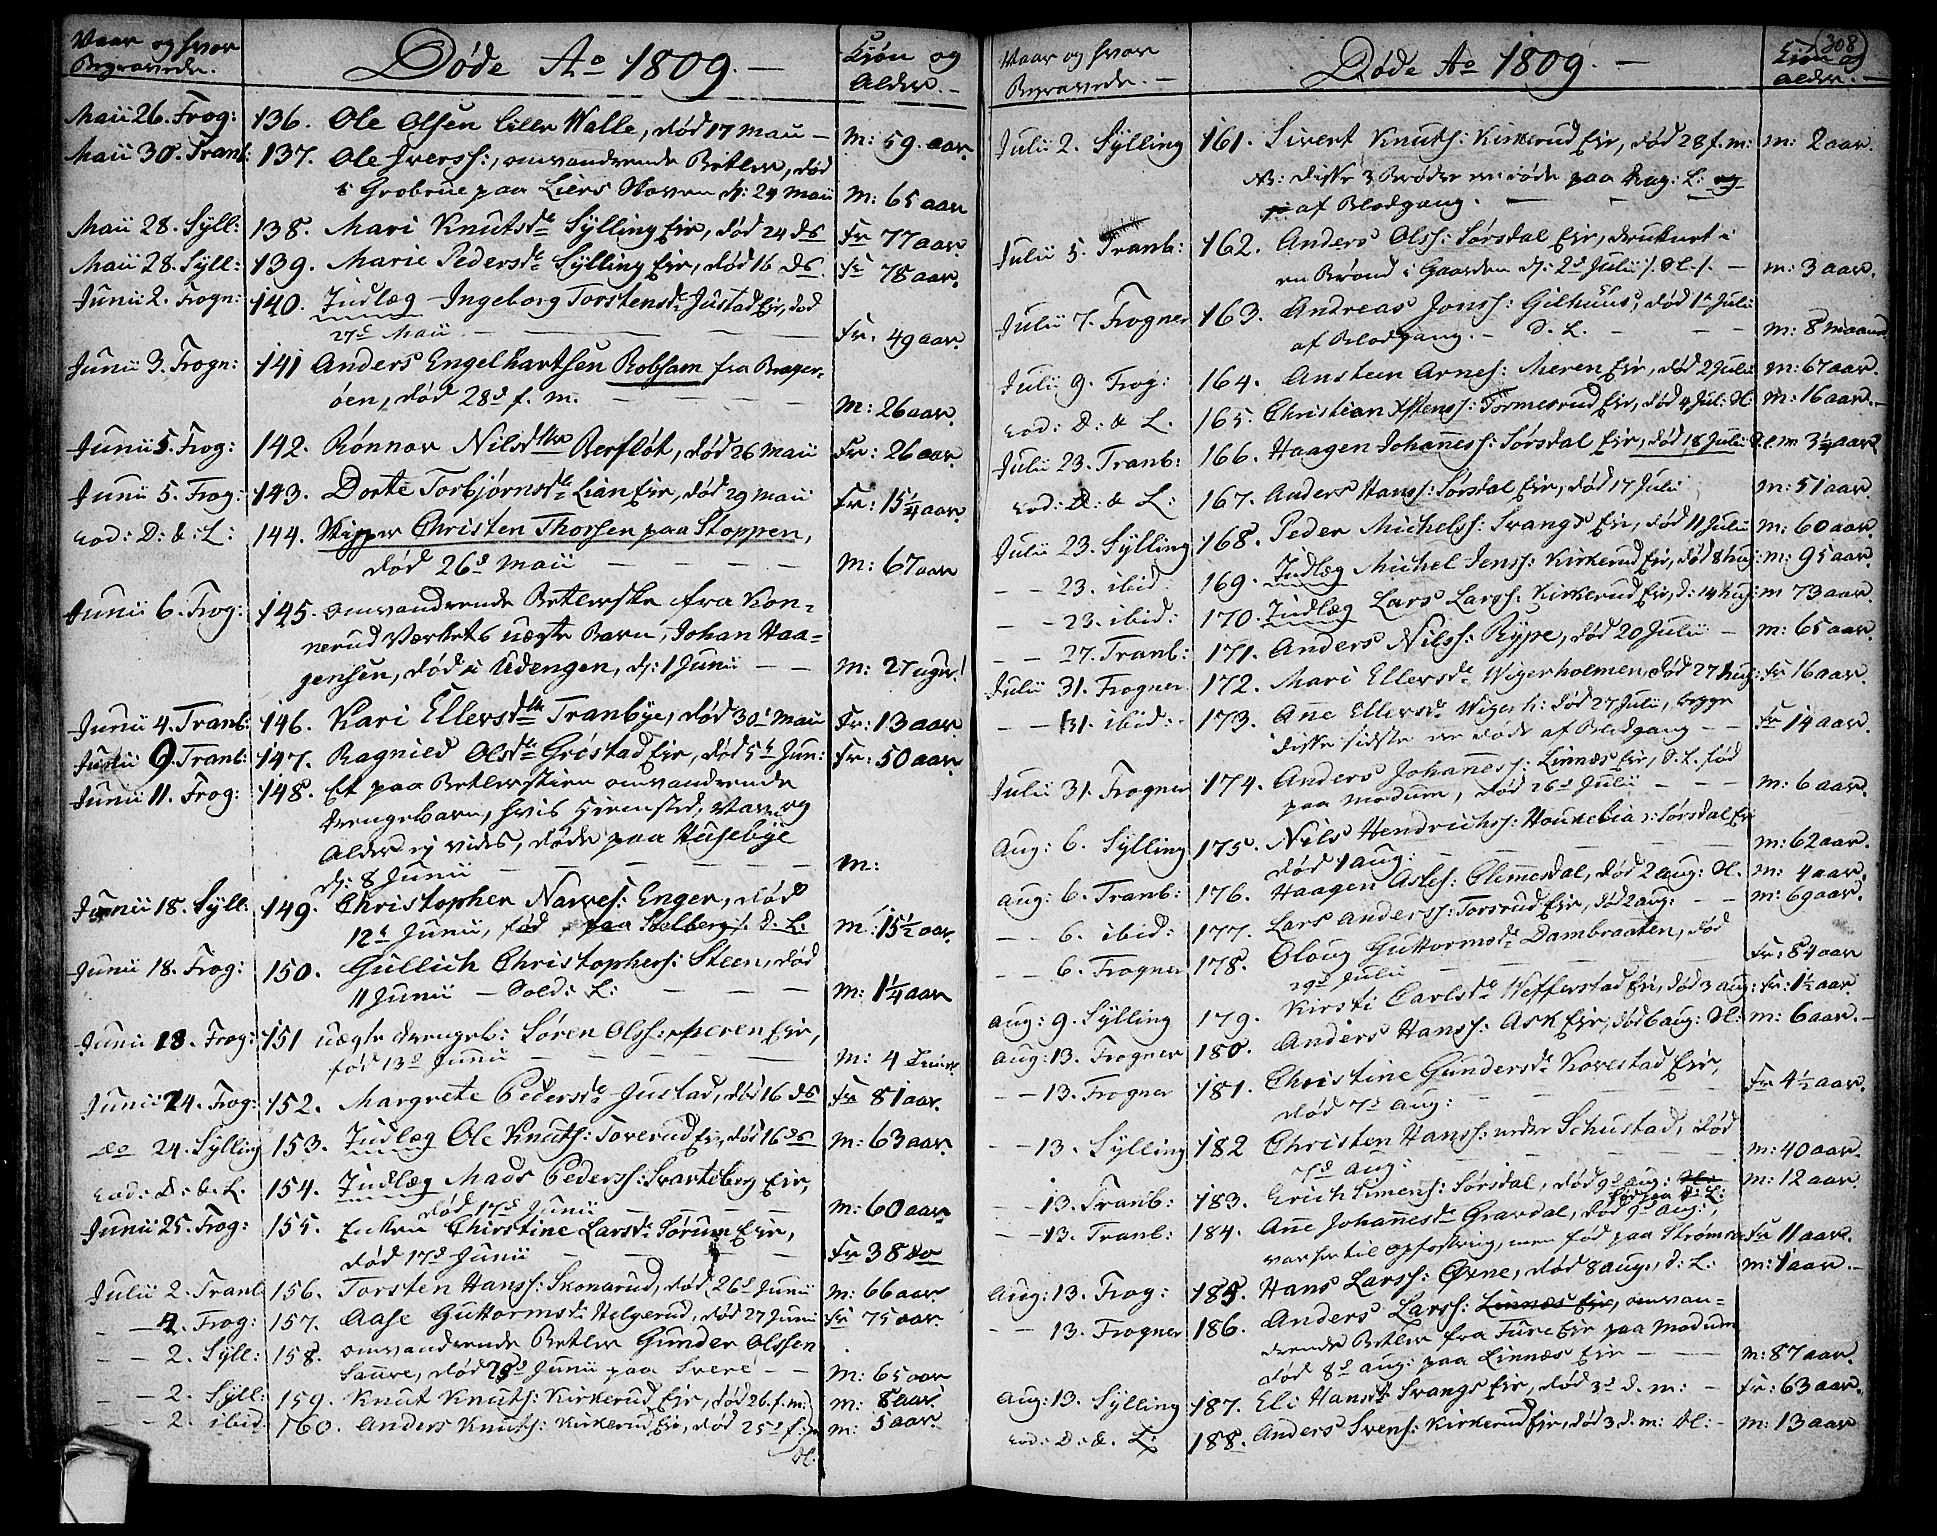 Naar og hvor
Begravede.
Døde Ao 1809.
Kiøn og
Alder.
Maii 26. Frog: 136. Ole Olsen Lille Walle, død 17 Maii — M: 59. aar.
Maii 30. Tranb: 137. Ole Iverss:, omvandrende Betler, død
i Grobrue paa Liers Skoven d: 24 Maii M: 65 aar
Maii 28. Syll: 138. Mari Knutsdr Sylling Eir, død 24 ds Fr 77 aar.
Maii 28. Syll: 139. Marie Pedersdr Sylling Eir, død 16 ds. Fr 78 aar.
Junii 2. Frogn: 140. Indlæg Ingeborg Torstensdr Justad Eir, død
27de Maii — Fr. 49 aar.
Junii 3. Frogn: 141 Anders Engelhartsen Robsam fra Brager-
öen, død 28d f. m. — M: 26 aar.
Junii 5. Frog: 142. Rønnov Nilsdtr Berfløt, død 26 Maii Fr: 26 aar.
Junii 5. Frog: 143. Dorte Torbjørnsdr Lian Eir, død 29 Maii Fr: 15 1/4 aar.
eod: D: &: L: 144. Skipper Christen Thorsen paa Stoppen,
død 26d Maii — M: 67 aar
Junii 6. Frog: 145. omvandrende Betlerske fra Kon-
nerud Værkets uægte Barn, Johan Haa-
gensen, død i Udengen, d: 1 Junii — M: 27 uger!
Junii 4. Tranb: 146. Kari Ellersdtr Tranbye, død 30t Maii Fr: 13 aar.
Junii 9. Tranb: 147. Ragnild Olsdr Gröstad Eir, død 5t Jun: Fr: 50 aar.
Junii 11. Frog: 148. Et paa Betlerstien omvandrende
Drengebarn, hvis Hiemsted, Navn og
Alder ej vides, døde paa Husebye
d: 8 Junii — M:
Junii 18. Syll: 149. Christopher Narves: Enger, død
12t Junii, fød paa Solberg /: D. L. M: 15 1/2 aar.
Junii 18. Frog: 150. Gullich Christophers: Steen, død
11 Junii — Sold: L: — M: 1 1/4 aar
Junii 18. Frog: 151 uægte Drengeb: Søren Olss: Meren Eir,
fød 13d Junii — M: 4
Junii 24. Frog: 152. Margrete Pedersdr Justad, død 16 ds Fr 81 aar.
do 24. Sylling 153. Indlæg Ole Knuts: Toverud Eir, død 16 ds M: 63 aar.
eod: D: & L. 154. Indlæg Mads Pederss: Svarteberg Eir,
død 17d Junii — M: 60 aar
Junii 25. Frog: 155. Enken Christine Larsdr Sørum Eir,
død 17d Junii — Fr 38 do
Julii 2. Tranb 156. Torsten Hanss: Skonarud, død 26d Junii M: 66 aar.
— 2. Frog: 157. Aase Guttormsdr Helgerud, død 27 Juni Fr 75 aar.
— 2. Syll: 158. omvandrende Betler Gunder Olssen
Saure, død 29d Junii paa Svere — M: 65 aar
— 2. Syll: 159. Knut Knuts: Kirkerud Eir, død 26. f. m: M: 8 aar
— 2. ibid: 160. Anders Knuts: Kirkerud Eir, død 25d f: m M: 5 aar.
Dl.
308
Naar og hvor
Begravede.
Døde Ao 1809.
Kiøn og
Alder.
Julii 2. Sylling 161. Sivert Knuts: Kirkerud Eir, død 28 f. m: M: 2 aar.
NB: disse 3 Brødre ere døde paa Aug: L:
af Blodgang.
Julii 5. Tranb: 162. Anders Olss: Sørsdal Eir, druknet i
en Brønd i Gaarden d: 2d Julii /. Dl. /. — M: 3 aar.
Julii 7. Frogner 163. Andreas Jonss: Gilhuus, død 1t Juli
af Blodgang. — D. L. — M: 8 Maaned
Julii 9. Frog: 164. Ansteen Arnes: Meren Eir, død 2 Julii M: 67 aar.
eod: D: & L. 165. Christian Østens: Tormesrud Eir, død 4 Jul: Dl: M: 16 aar.
Julii 23. Tranb: 166. Haagen Johanness: Sørsdal Eir, død 18 Julii M 3 1/4 aar
eod: D: & L: 167. Anders Hanss: Sørsdal Eir, død 17 Julii M: 51 aar.
Julii 23. Sylling 168. Peder Michelss: Svangs Eir, død 11 Julii M: 60 aar.
— 23. ibid 169. Indlæg Michel Jenss: Kirkerud Eir, død 8 huj: M: 95 aar.
— 23. ibid: 170. Indlæg Lars Larss: Kirkerud Eir, d: 14 huj: M 73 aar.
— 27. Tranb: 171. Anders Nilss: Rype, død 20 Julii — M: 65 aar.
Julii 31. Frogner 172. Mari Ellersdr Wigerholmen, død 27 huj: Fr 16 aar.
— 31. ibid: 173. Ane Ellersdr Wigerh: død 27 Julii, begge
disse sidste ere døde af Blodgang — Fr 14 aar.
Julii 31. Frogner 174. Anders Johaness: Linnæs Eir, D. L. fød
paa Modum, død 26d Julii — M: 6 aar.
Aug: 6. Sylling 175. Nils Hendrichss: Houkelia : Sørsdal Eir
død 1 Aug: — M: 62 aar.
Aug: 6. Tranb: 176. Haagen Asles: Clemesdal, død 2 Aug: Dl. M: 4 aar.
— 6. ibid: 177. Lars Anderss: Torsrud Eir, død 2 Aug: — M: 69 aar.
— 6. Frogner 178. Oloug Guttormsdr Dambraaten, død
29d Julii — Fr: 84 aar
Aug: 9. Sylling 179. Kirsti Carlsdr Wefferstad Eir, død 3 Aug: Fr: 1 1/2 aar.
Aug: 13. Frogner 180. Anders Hanss: Ask Eir, død 6 Aug: Dl: M: 6 aar.
— 13. Frogner 181. Christine Gundersdr Kovestad Eir,
død 7d Aug: — Fr 4 1/2 aar.
— 13. Sylling 182 Christen Hanss: under Schustad, død
7d Aug: — M: 40 aar.
— 13. Tranb: 183. Erich Simens: Sørsdal, død 9d Aug: D: L: M: 12 aar.
— 13. Tranb: 184. Ane Johannesdr Gravdal, død 9d Aug:,
var her til Opfostring, men fød paa Strømsøe Fr 11 aar.
Aug: 13. Frog: 185. Hans Larss: Øvne, død 8 Aug:, D: L: M: 1 aar.
— 13. Frogner 186. Anders Larss: Linnæs Eir, omvan-
drende Betler fra Fure Eir paa Modum
død 8d Aug: paa Linnæs Eir — M: 87 aar.
Aug: 13. Sylling 187. Eli Hansdr Svangs Eir, død 3d d. m: — Fr: 63 aar.
eod: D: & L: 188. Anders Svens: Kirkerud Eir, død 3. d. m: Dl: — M: 13 aar